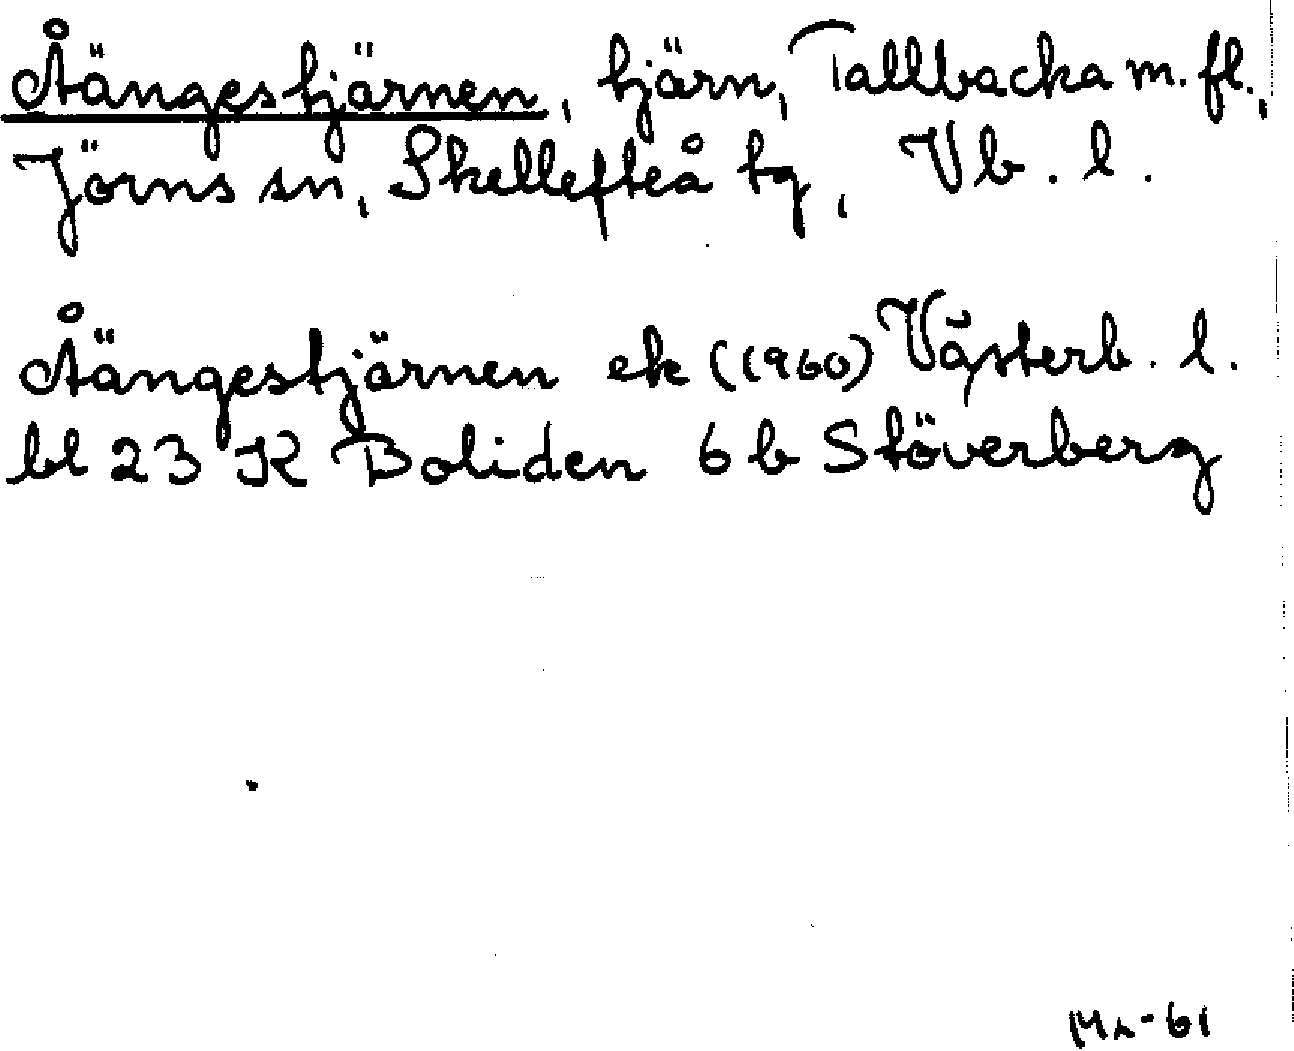 Åängestjärnen, tjärn, Tallbacka m. fl.,
Jörns sn, Skellefteå tg, Vb. l.
Åängestjärnen ek (1960) Västerb. l.
bl 23 K Boliden 6 b Stöverberg